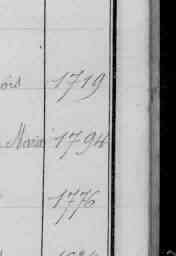 ois 1719
Maria 1794
1776